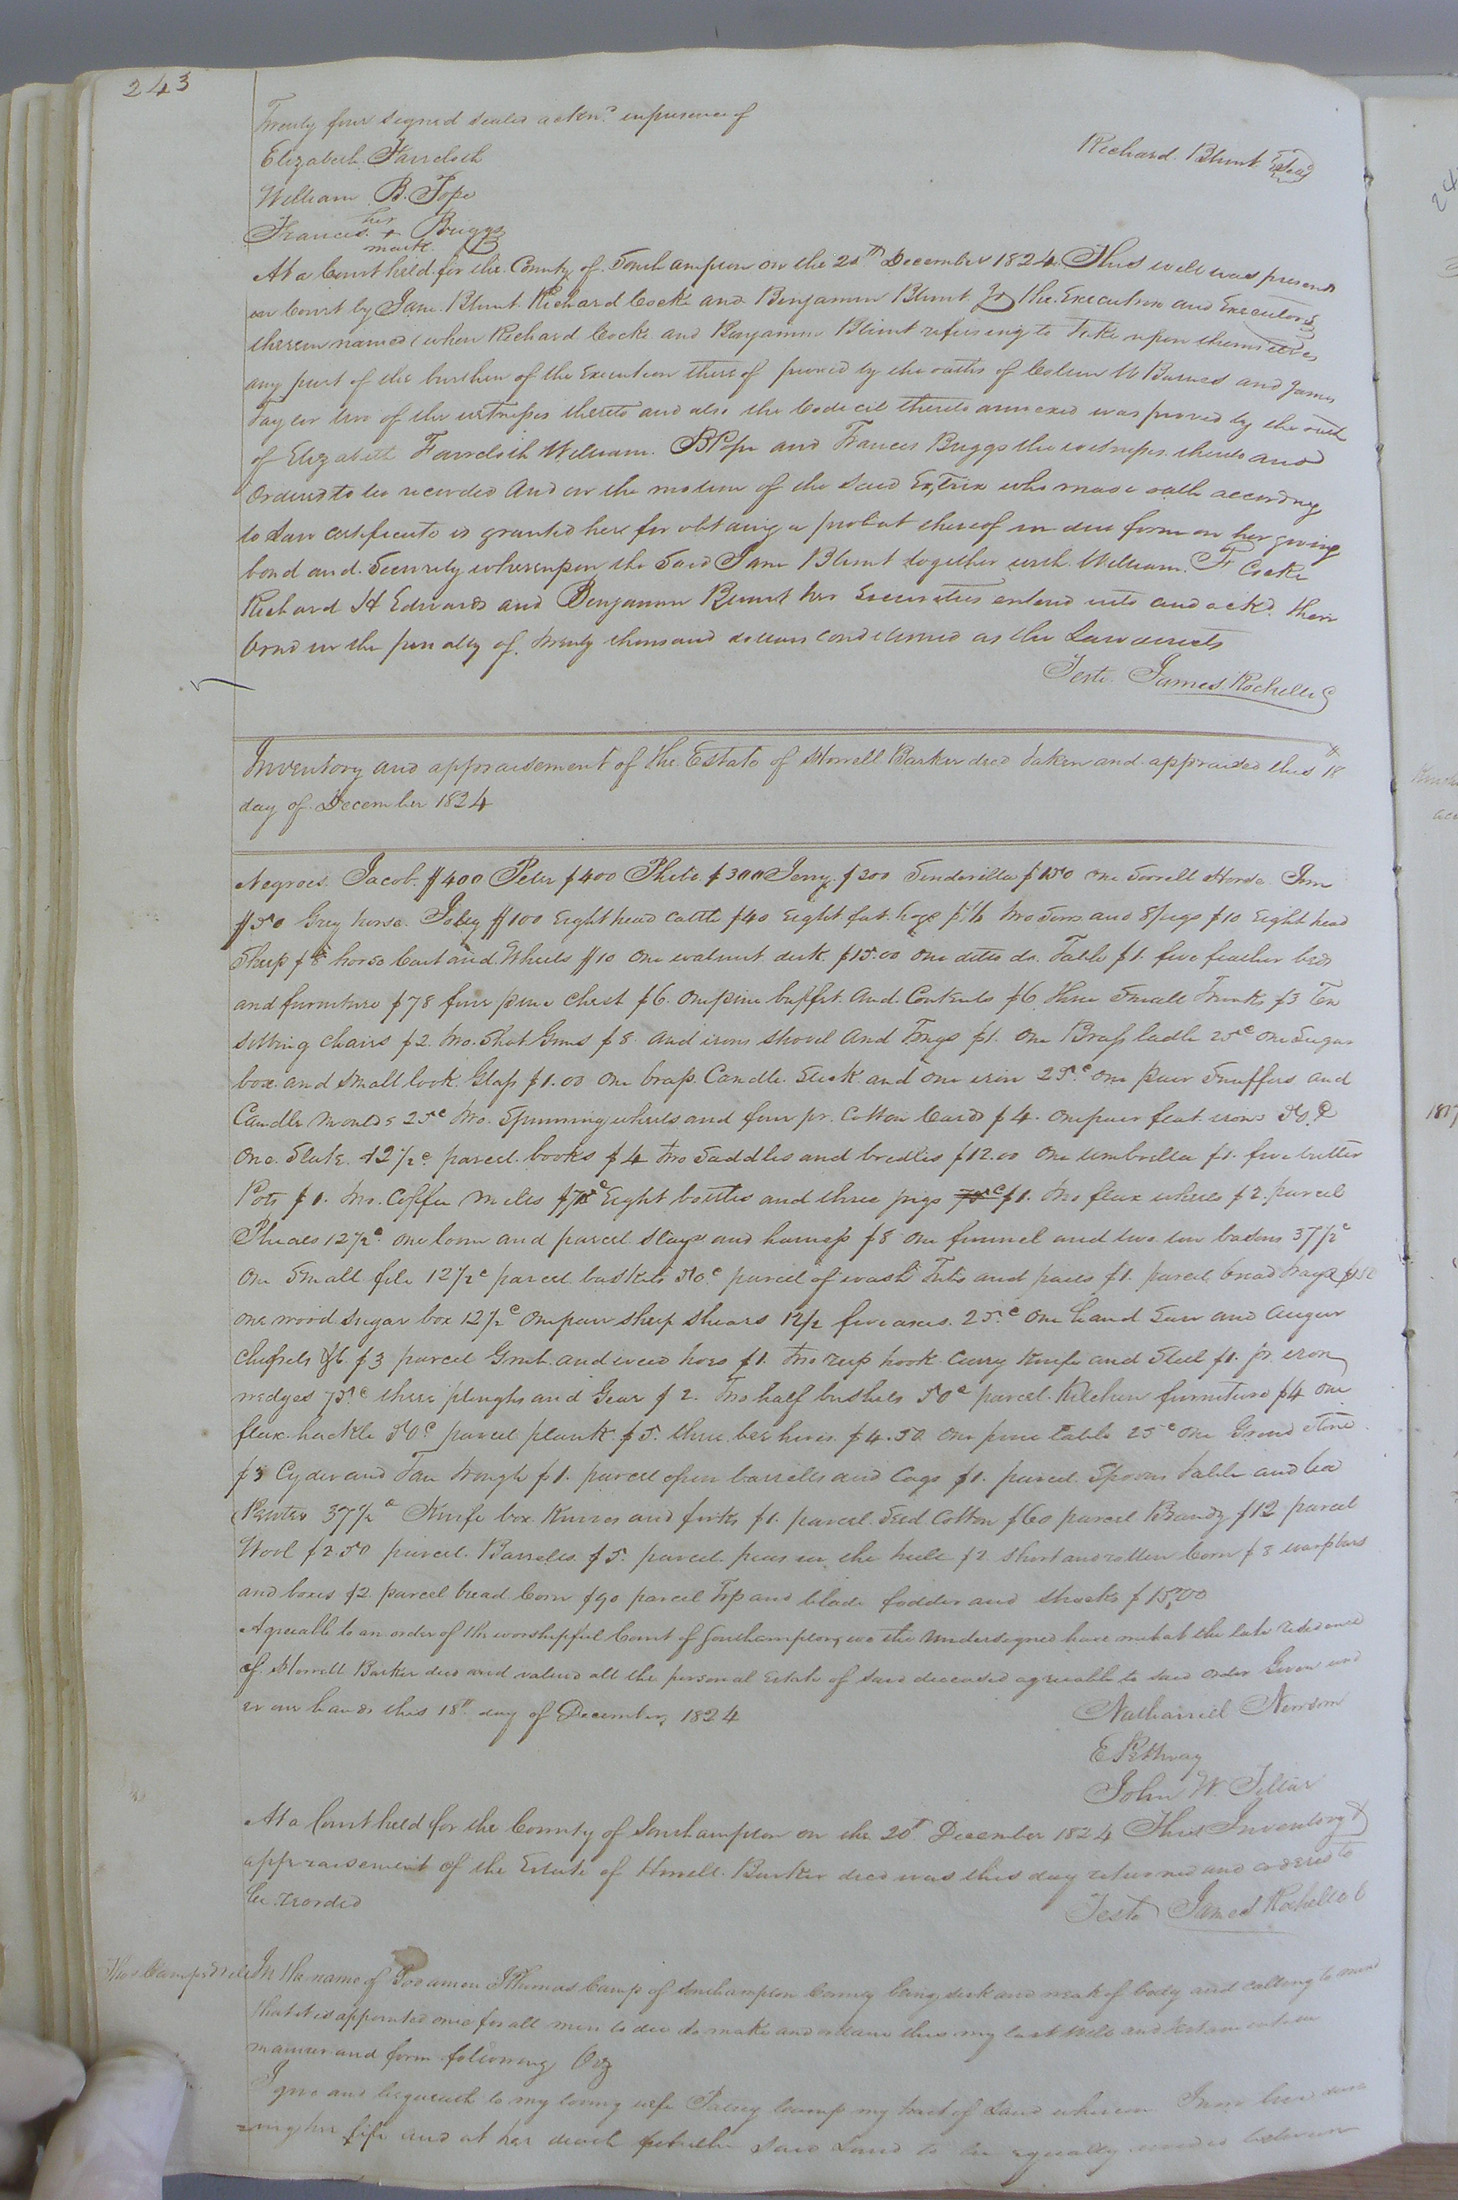 243
Twenty four signed seales ackn.d in presence of
Richard Blunt Seal
Elizabeth Faircloth
William B. Pope
her
Frances + Briggs
mark
At a Court held for the County of Southampton on the 20th December 1824 This will was presend
in Court by Jane Blunt Richard Cocke and Benjamin Blunt the Executrix and Executors
therein named when Richard Cocke and Benjamin Blunt refusing to Take upon themselves
any part of the burthen of the Execution thereof proved by the oaths of W Barnes and James
Taylor two of the witnesses thereto and also the Codecil thereto annexed was proved by the oath
of Elizabeth Faircloth William. B Pope and Frances Briggs the witnesses thereto and
Ordered to be recorded And on the motion of the said Extrix who made oath according
to Law certificate is granted her for obtaing a probat thereof in due form on her giving
bond and Security whereupon the Said Jane Blunt together with William. F Cocke
Richard H Edwards and Benjamin Blunt her Securities enterd into and ackd their
bond in the penalty of twenty thousand dollars conditioned as the Law directs
Teste James Rochelle C
Inventory and appraisement of the Estate of Howell Barker decd taken and appraised this 18th
day of December 1824
Negroes Jacob $400 Peter $400 Phebe $300 Jerry $200 Senderilla $150 one Sorrell Horse
$50 Grey horse $100 Eight head cattle $40 Eight fat hogs two Sows and 8 pigs $10 Eight head
Sheep $8 horse Cart and Wheels $10 one walnut desk $15.00 one ditto do. Table $1. five feather beds
and furniture $78 four pine Chest $6. one pine buffet and Contents $6 three Small Trunks $3 Ten
Sitting Chairs $2. two Shot Guns $8 and irons Shovel and Tongs $1. One Brass ladle 25c one Sugar
box and small look Glass $1.00 one brass Candle Stick and one iron 25c one pair Snuffers and
Candle Moulds 25c two Spinning wheels and four pr. Cotton Cards $4. one pair flat irons 50c
One Slate 12½c parcel books $4 two Saddles and bridles $12.00 one umbrella $1. five butter
Pots $1. two Coffee Mills 75c Eight bottles and three jugs $1. two flax wheels $2. parcel
12½c one loom and parcel Slays and harness $8 one funnel and two tin basons 37½c
One Small file 12½c parcel baskets 50c parcel of wash Tubs and pails $1. parcel bread trays
one wood sugar box 12½c one pair sheep shears 12½ five axes 25c one hand Saw and Auger
Chissels &c $3 parcel Grub and weed hoes $1. two reap hook Curry Knife and Steel $1. pr iron
wedges 75c three ploughs and Gear $2. two half bushels 50c parcel Kitchen furniture $4 one
flax hackle 50c parcel plank $5. three bee hives $4.50 one pine table 25c one Grind Stone
$3 Cyder and Tan trough $1. parcel open barrells and Cags $1. parcel Spoons table and tea
Pewter 37½c Knife box Knives and forks $1. parcel Seed Cotton $60 parcel Brandy $12 parcel
Wool $2 50 parcel Barrells $5. parcel peas in the hull $2 Short and rotten Corn $8
and boxes $2 parcel bread Corn $90 parcel Top and blade fodder and shucks $15,00
Agreeable to an order of the worshipful Court of Southampton, we the undersigned have met at the late residence
of Howell Barker decd and valued all the personal Estate of said deceased agreeable to said order Given und
er our hands this 18th day of December, 1824
Nathaniel Newsom
E Pettway
John W. Tillar
At a Court held for the County of Southampton on the 20th December 1824 This Inventory &
appraisement of the Estate of Howell Barker decd was this day returned and ordered to
be recorded
Teste James Rochelle C
Thos Camps Will
In the name of God amen I Thomas Camp of Southampton County being sick and weak of body and calling to mind
that it is appointed once for all men to die do make and ordain this my last Will and testament in
manner and form following Viz
I give and bequeath to my loving wife Patsey Camp my tract of Land whereon I now live dur
=ing her life and at her death said Land to be equally between